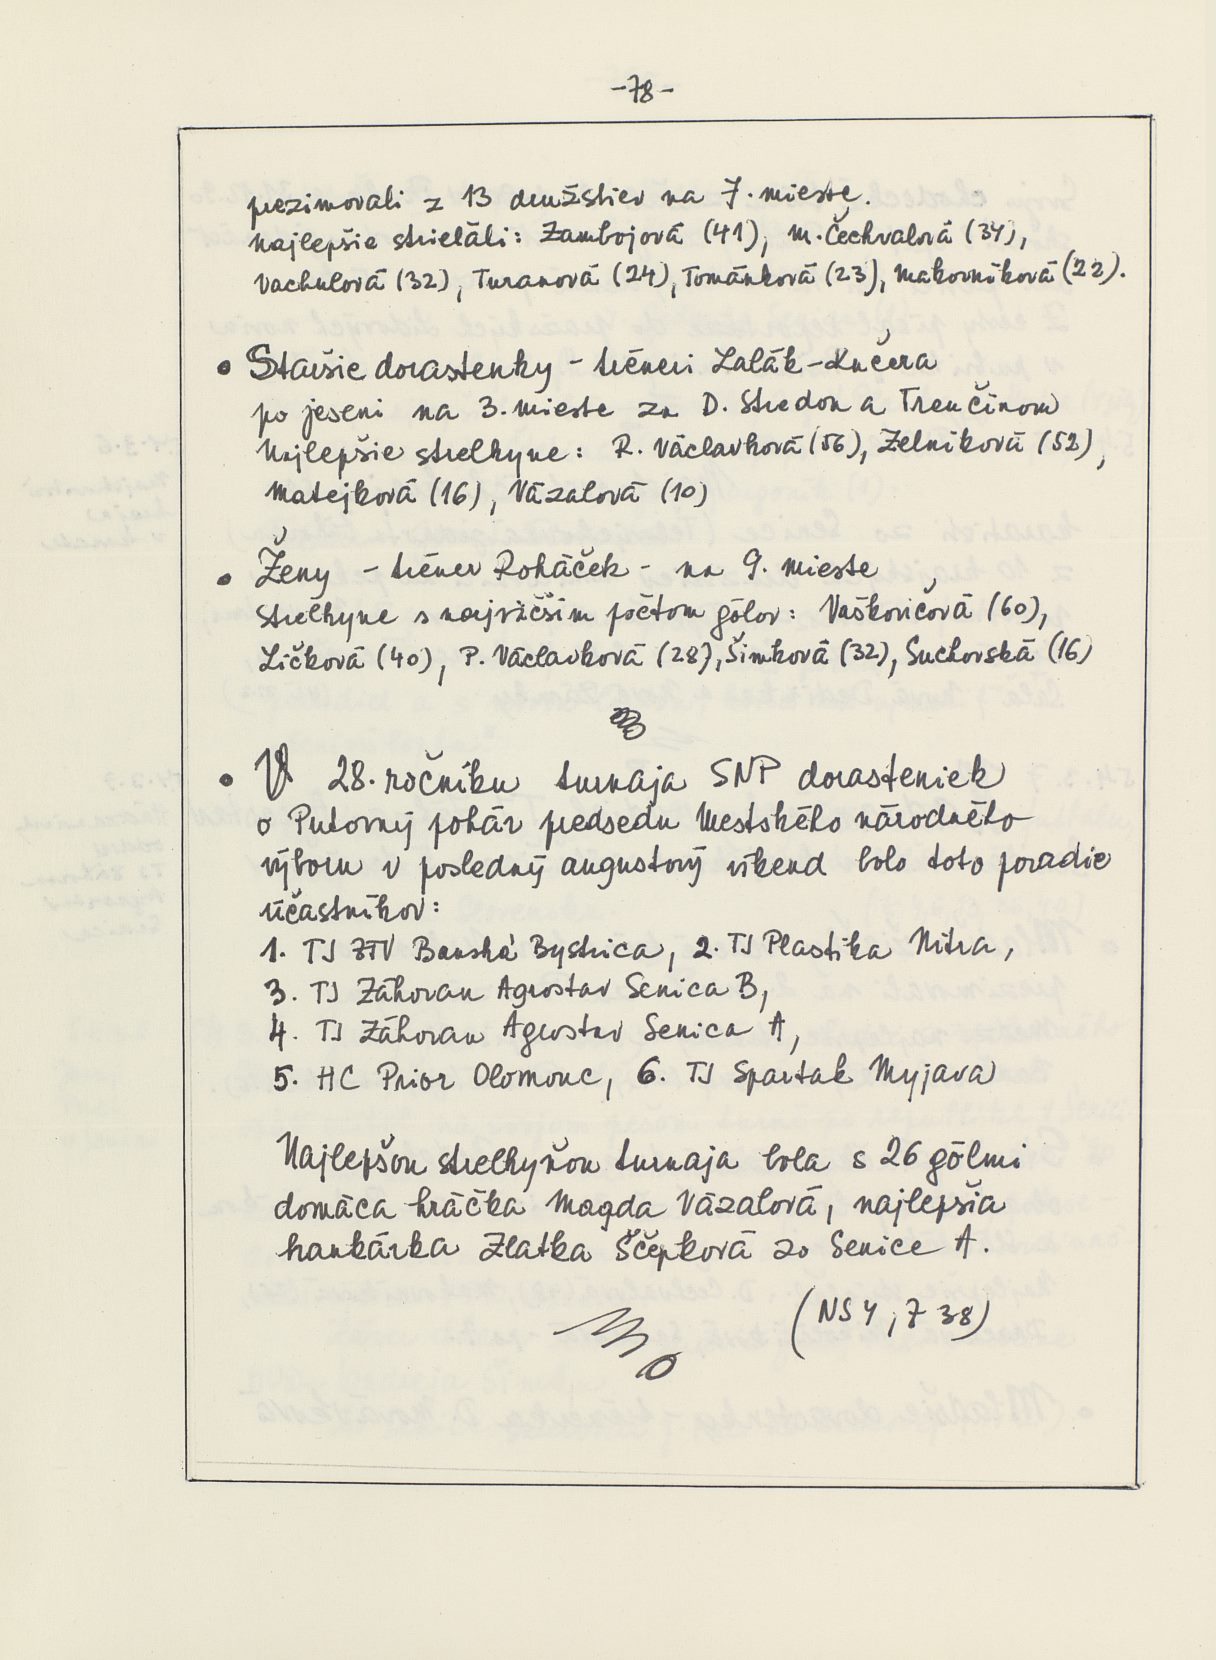 -78-
prezimovali z 13 družstiev na 7. mieste.
Najlepšie strieľali: Zambojová (41), M. Čechvalová (34),
Vachulová (32), Turanová (24), Tománková (23), Makovníková (22).
• Staršie dorastenky - tréneri Lalák-Kučera
po jeseni na 3. mieste za D. Stredon a Trenčínom
Najlepšie strelkyne: R. Václavková (56), Zelníková (52),
Matejková (16), Vázalová (10)
• Ženy - tréner Roháček - na 9. mieste
strelkyne s najväčším počtom gólov: Vaškovičová (60),
Ličková (40), P. Václavková (28), Šimková (32), Suchovská (16)
• V 28. ročníku turnaja SNP dorasteniek
o Putovný pohár predsedu Mestského národného
výboru v posledný augustový víkend bolo toto poradie
účastníkov:
1. TJ ZŤV Banská Bystrica, 2. TJ Plastika Nitra,
3. TJ Záhoran Agrostav Senica B,
4. TJ Záhoran Agrostav Senica A,
5. HC Prior Olomouc, 6. TJ Spartak Myjava
Najlepšou strelkyňou turnaja bola s 26 gólmi
domáca hráčka Magda Vázalová, najlepšia
brankárka Zlatka Ščepková zo Senice A.
(NSY, 738)